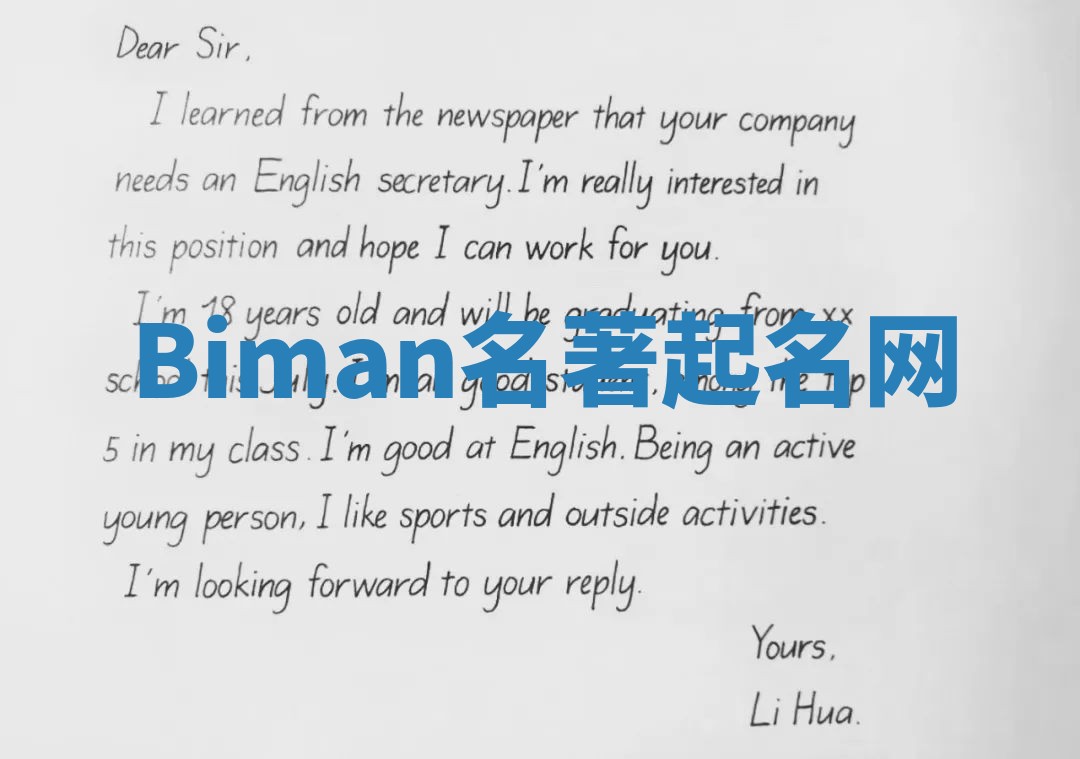 Dear Sir,
I learned from the newspaper that your company
needs an English secretary. I'm really interested in
this position and hope I can work for you.
I'm 18 years old and will be graduating from xx
Biman名著起名网
school this July. I'm a good student, among the top
5 in my class. I'm good at English. Being an active
young person, I like sports and outside activities.
I'm looking forward to your reply.
Yours,
Li Hua.